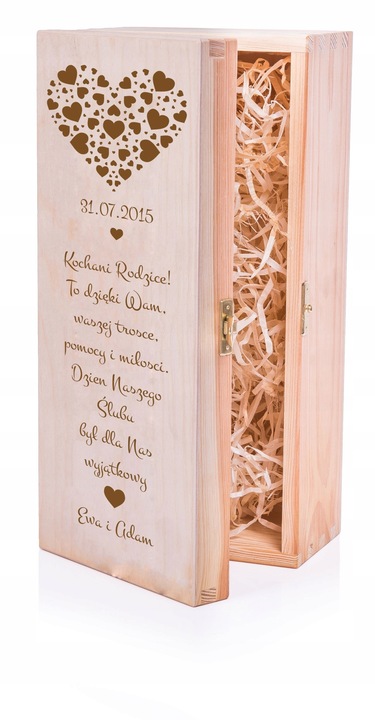 31.07.2015
Kochani Rodzice!
To dzięki Wam,
waszej trosce,
pomocy i miłosci.
Dzien Naszego
Ślubu
był dla Nas
wyjątkowy
Ewa i Adam